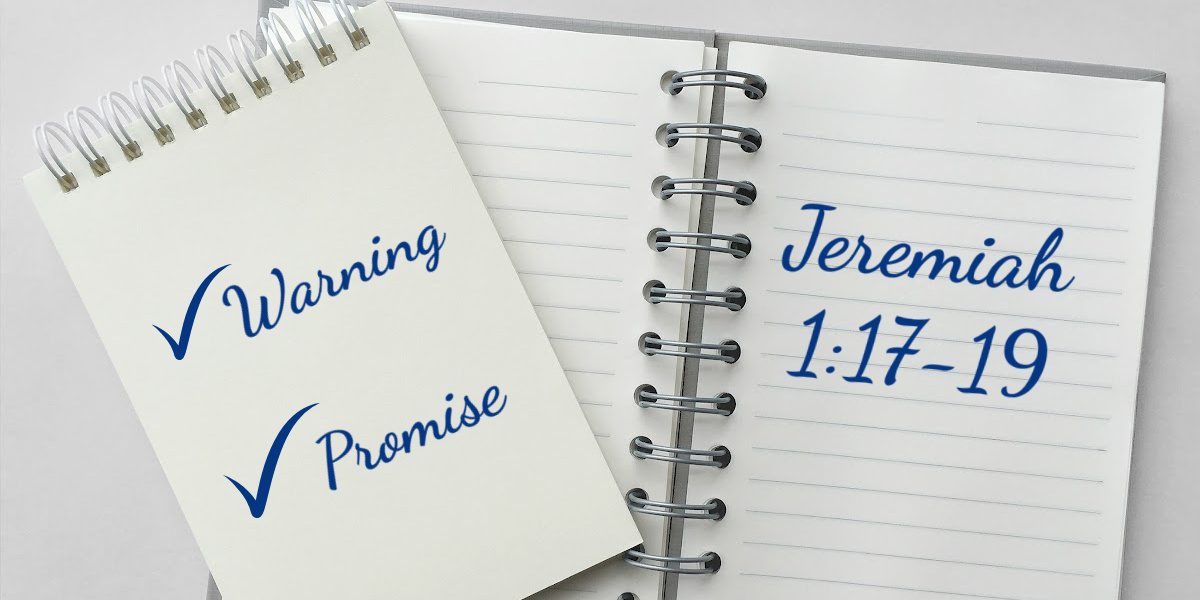 ✓ Warning
✓ Promise
Jeremiah
1:17-19